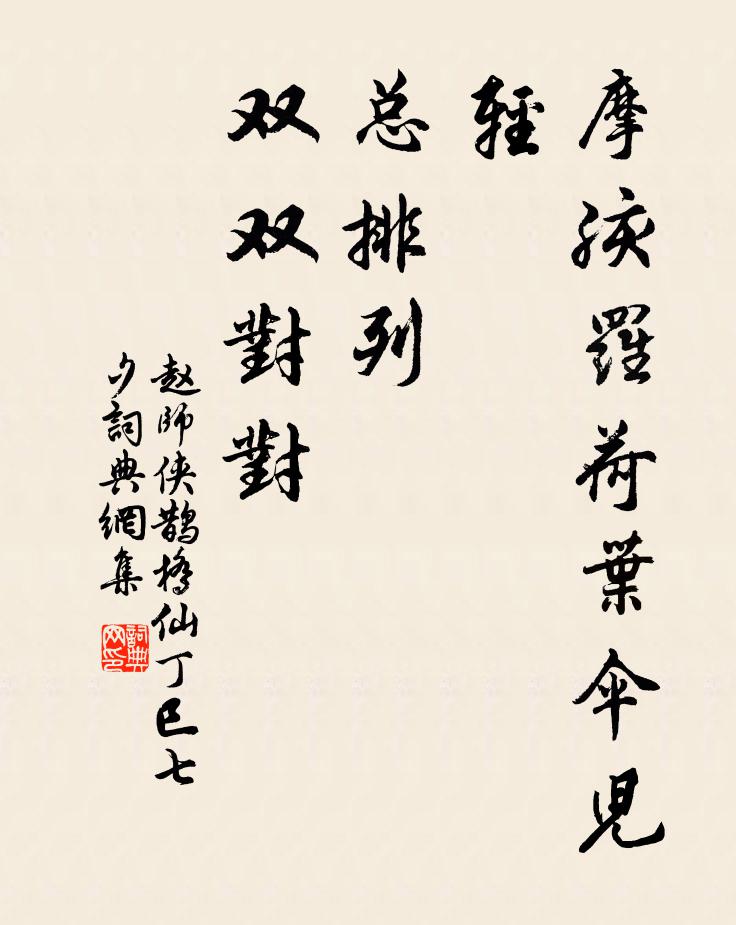 摩孩羅荷葉伞兒
輕
总排列
双双對對
赵師侠鹊橋仙丁巳七
夕詞典網集
詞典
网印